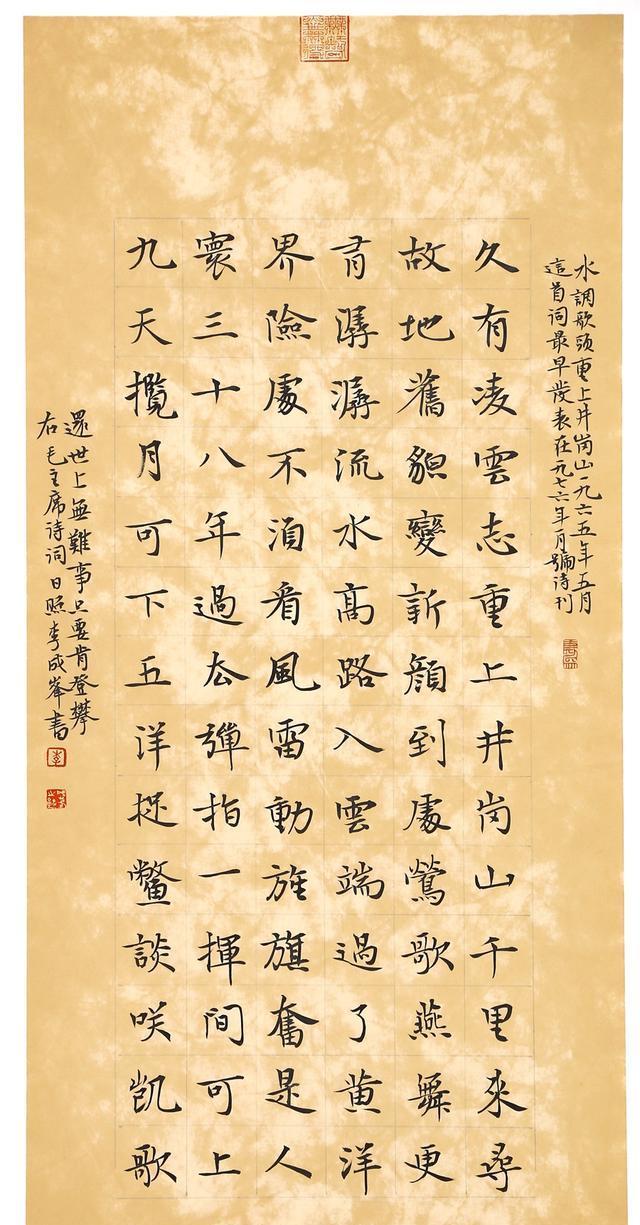 水調歌頭重上井岗山一九六五年五月
這首词最早發表在一九七六年一月號诗刊
久有凌雲志重上井岗山千里來尋
故地舊貌變新顔到處鶯歌燕舞更
有潺潺流水高路入雲端過了黄洋
界險處不須看風雷動旌旗奮是人
寰三十八年過去彈指一揮間可上
九天攬月可下五洋捉鱉談笑凱歌
還世上無難事只要肯登攀
右毛主席诗词日照李成峯書
李